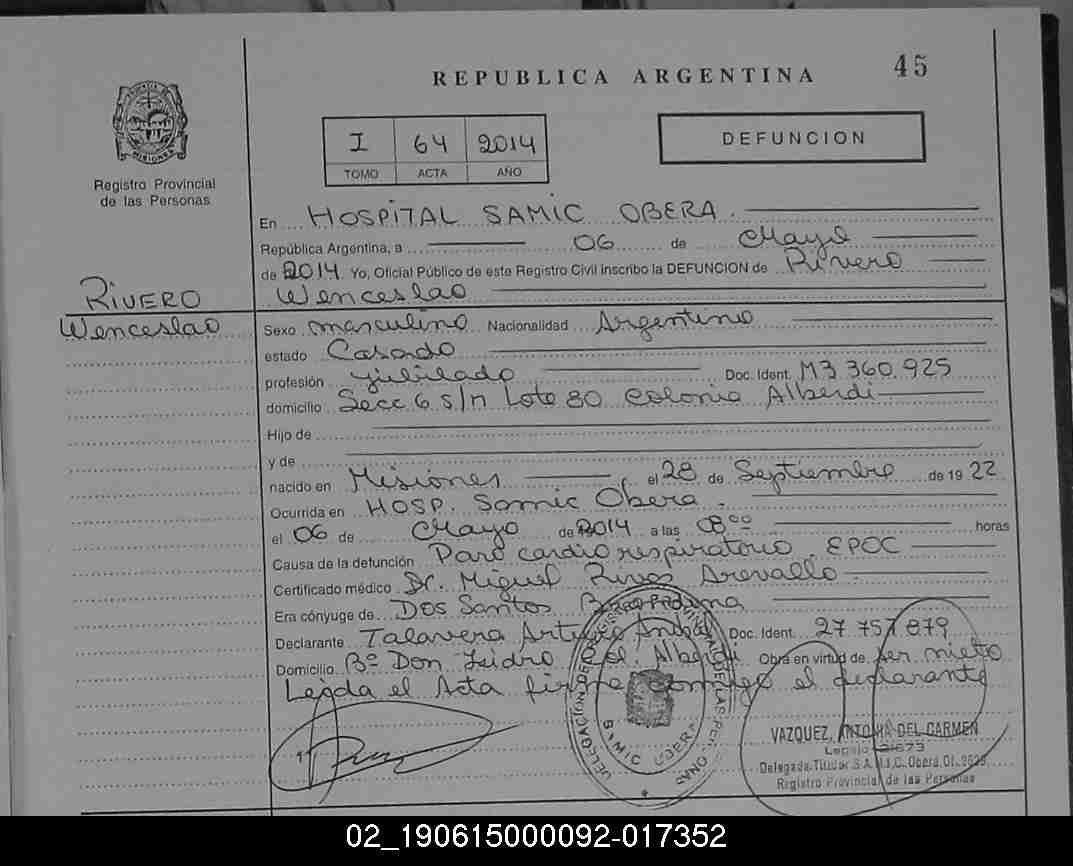 REPUBLICA ARGENTINA
45
PROVINCIA DE MISIONES
Registro Provincial
de las Personas
I 64 2014
TOMO ACTA AÑO
DEFUNCION
En HOSPITAL SAMIC OBERA.
República Argentina, a 06 de Mayo
de 2014 Yo, Oficial Público de este Registro Civil inscribo la DEFUNCION de Rivero
Wenceslao
RIVERO
Wenceslao
Sexo masculino Nacionalidad Argentino
estado Casado
profesión jubilado Doc. Ident. M3 360.925
domicilio Secc 6 s/n Lote 80 Colonia Alberdi
Hijo de
y de
nacido en Misiones el 28 de Septiembre de 1922
Ocurrida en HOSP. Samic Obera.
el 06 de Mayo de 2014 a las 08 00 horas
Causa de la defunción Paro cardio respiratorio. EPOC
Certificado médico Dr. Miguel Rivas Arevallo.
Era cónyuge de Dos Santos
Declarante Talavera Arturo Anibal Doc. Ident. 27 757 879
Domicilio Bº Don Isidro Col. Alberdi Obra en virtud de ser nieto
Leida el Acta firma conmigo el declarante
SAMIC OBERA
VAZQUEZ, ANTONIA DEL CARMEN
Delegada Titular S.A.M.I.C. Oberá
Registro Provincial de las Personas
02_190615000092-017352